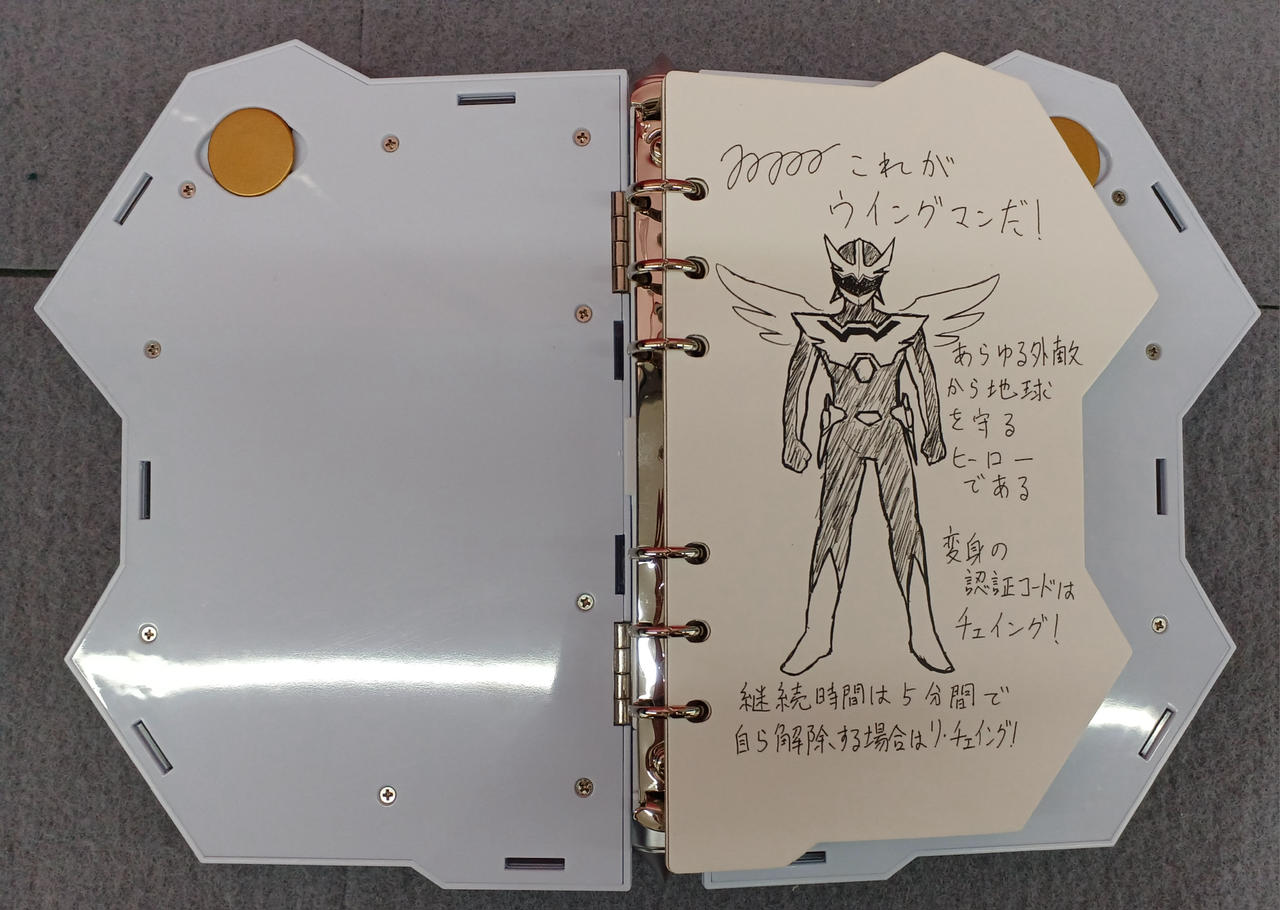 これが
ウイングマンだ!
あらゆる外敵
から地球
を守る
ヒーロー
である
変身の
認証コードは
チェイング!
継続時間は5分間で
自ら解除、する場合はリ・チェイング!